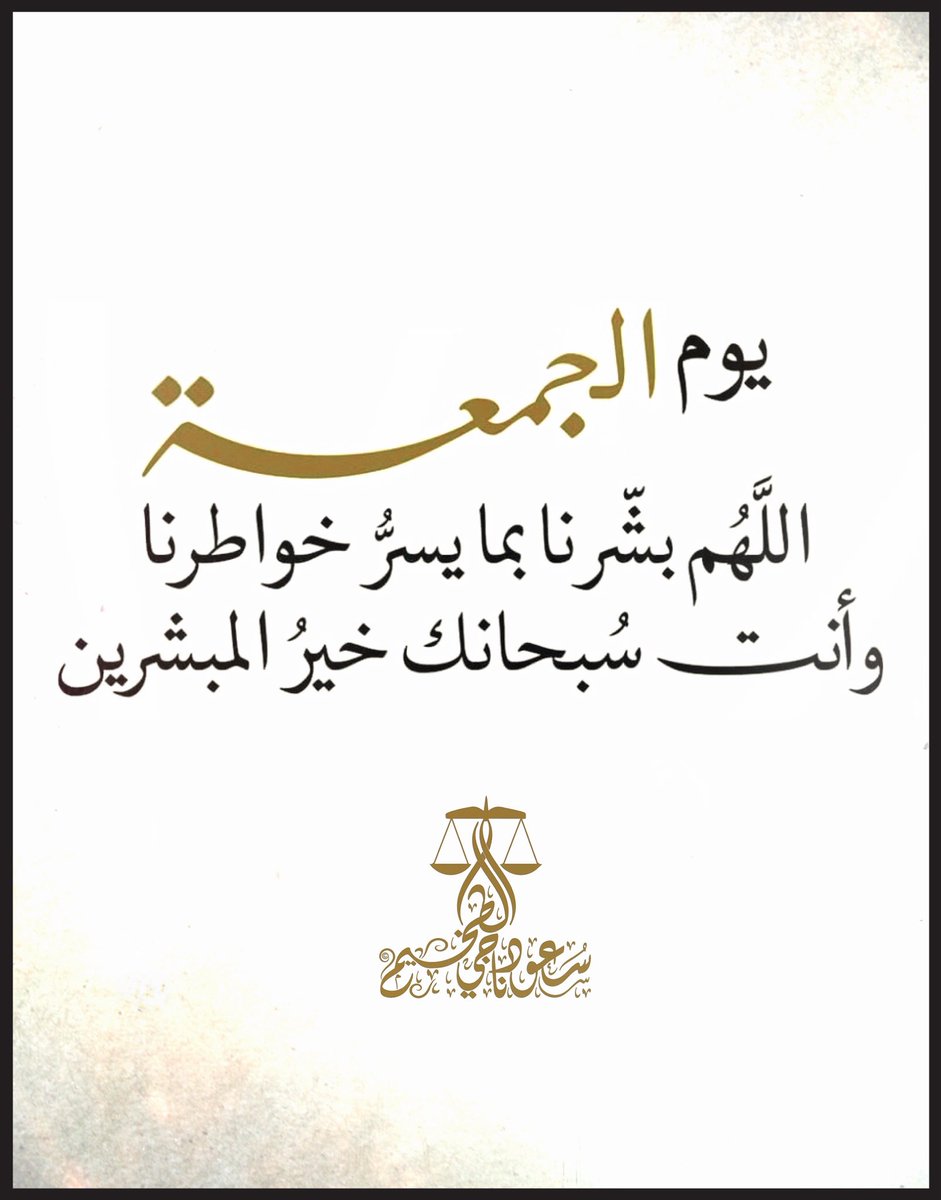 يوم الجمعة
اللَّهُم بشّرنا بما يسرُّ خواطرنا
وأنت سُبحانك خيرُ المبشرين
سعود ناجي